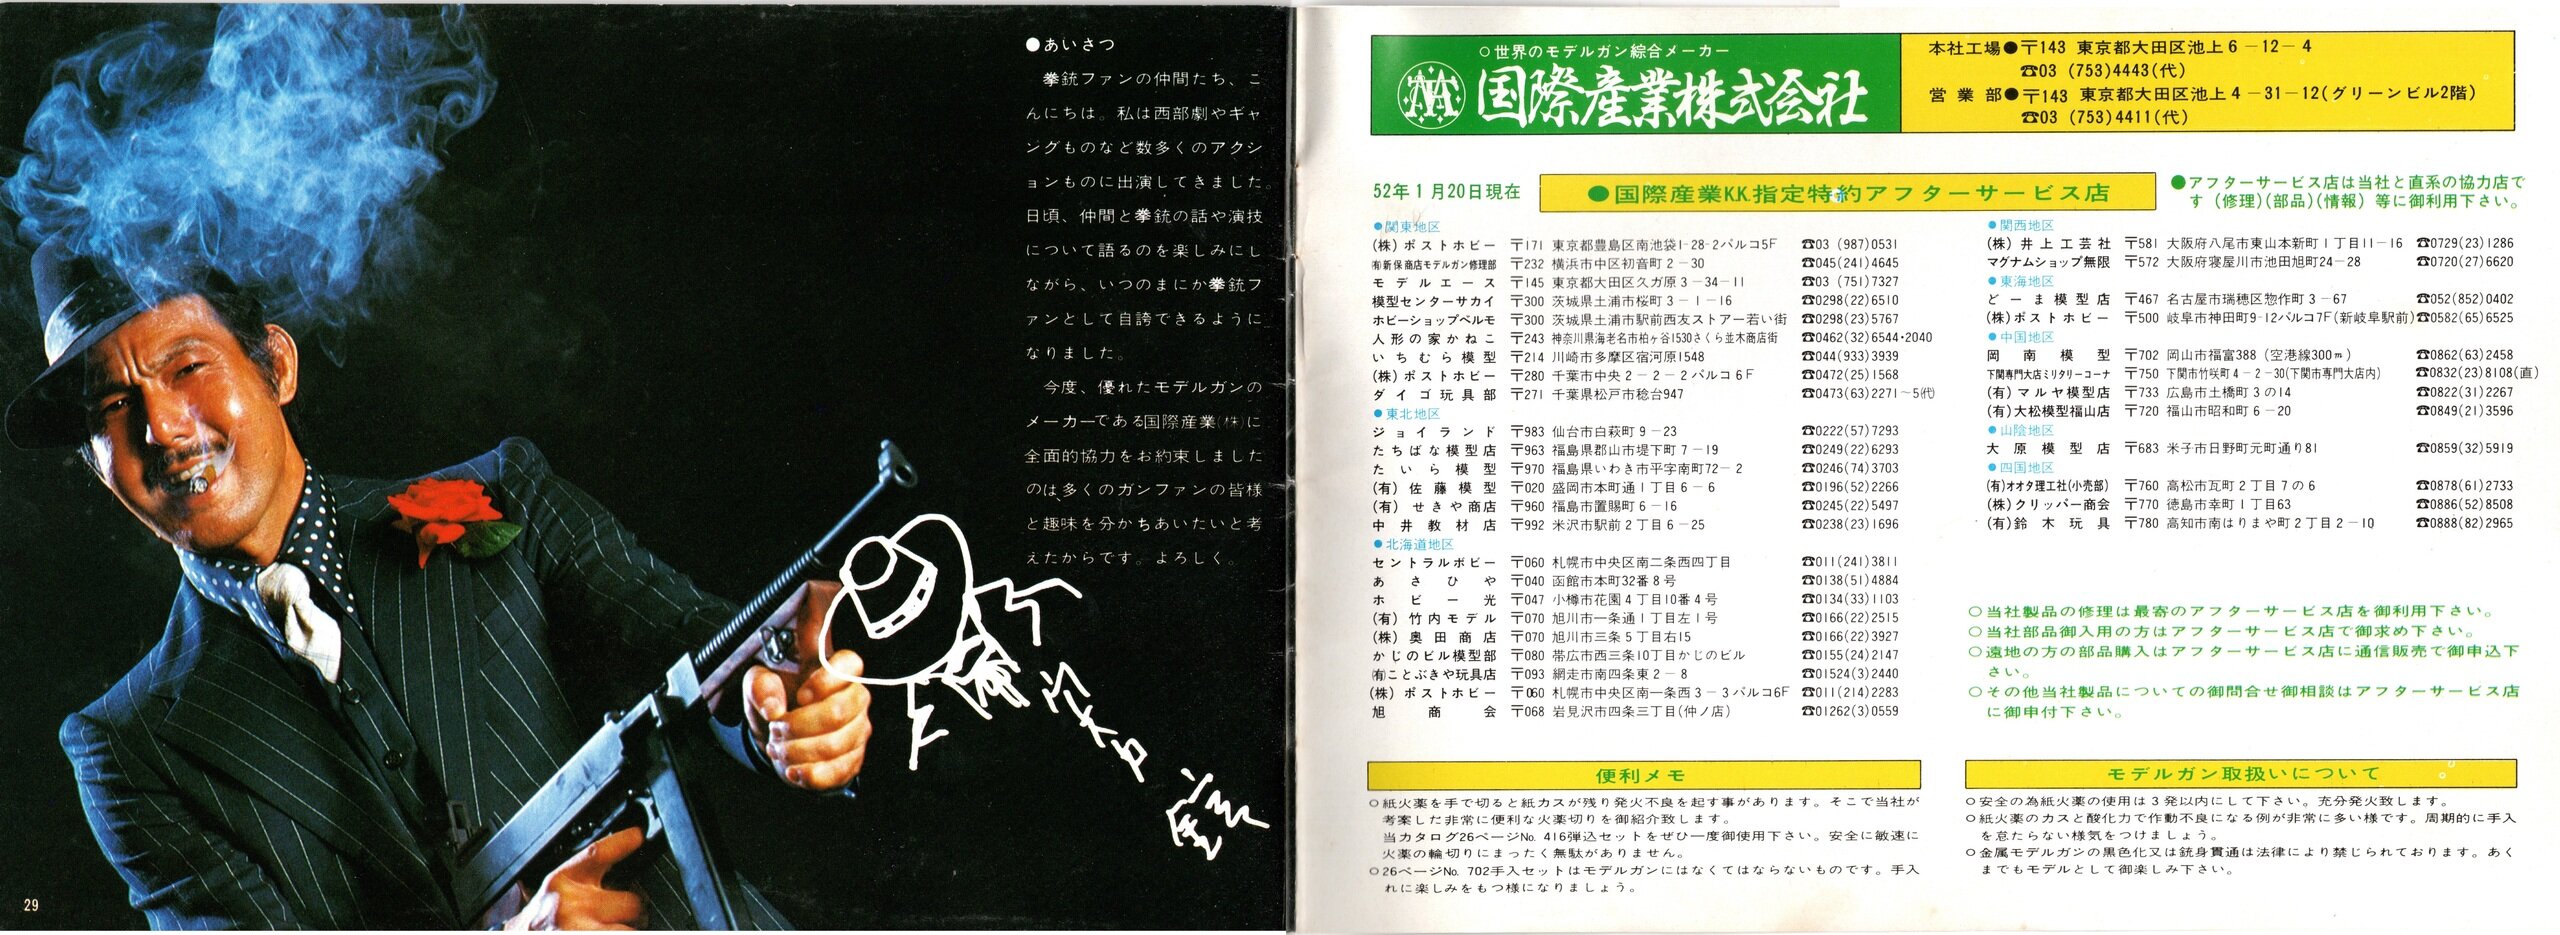 ●あいさつ
拳銃ファンの仲間たち、こ
んにちは。私は西部劇やギャ
ングものなど数多くのアクシ
ョンものに出演してきました。
日頃、仲間と拳銃の話や演技
について語るのを楽しみにし
ながら、いつのまにか拳銃フ
ァンとして自誇できるように
なりました。
今度、優れたモデルガンの
メーカーである国際産業(株)に
全面的協力をお約束しました
のは、多くのガンファンの皆様
と趣味を分かちあいたいと考
えたからです。よろしく。
29
○世界のモデルガン綜合メーカー
国際産業株式会社
本社工場●〒143 東京都大田区池上6-12-4
☎03 (753)4443(代)
営業部●〒143 東京都大田区池上4-31-12(グリーンビル2階)
☎03 (753)4411(代)
52年1月20日現在
●国際産業K.K.指定特約アフターサービス店
●アフターサービス店は当社と直系の協力店で
す(修理)(部品)(情報)等に御利用下さい。
●関東地区
(株)ポストホビー 〒171 東京都豊島区南池袋1-28-2パルコ5F ☎03 (987)0531
(有)新保商店モデルガン修理部 〒232 横浜市中区初音町2-30 ☎045(241)4645
モデルエース 〒145 東京都大田区久ガ原3-34-11 ☎03 (751)7327
模型センターサカイ 〒300 茨城県土浦市桜町3-1-16 ☎0298(22)6510
ホビーショップベルモ 〒300 茨城県土浦市駅前西友ストアー若い街 ☎0298(23)5767
人形の家かねこ 〒243 神奈川県海老名市柏ヶ谷1530さくら並木商店街 ☎0462(32)6544・2040
いちむら模型 〒214 川崎市多摩区宿河原1548 ☎044(933)3939
(株)ポストホビー 〒280 千葉市中央2-2-2パルコ6F ☎0472(25)1568
ダイゴ玩具部 〒271 千葉県松戸市稔台947 ☎0473(63)2271~5(代)
●東北地区
ジョイランド 〒983 仙台市白萩町9-23 ☎0222(57)7293
たちばな模型店 〒963 福島県郡山市堤下町7-19 ☎0249(22)6293
たいら模型 〒970 福島県いわき市平字南町72-2 ☎0246(74)3703
(有)佐藤模型 〒020 盛岡市本町通1丁目6-6 ☎0196(52)2266
(有)せきや商店 〒960 福島市置賜町6-16 ☎0245(22)5497
中井教材店 〒992 米沢市駅前2丁目6-25 ☎0238(23)1696
●北海道地区
セントラルホビー 〒060 札幌市中央区南二条西四丁目 ☎011(241)3811
あさひや 〒040 函館市本町32番8号 ☎0138(51)4884
ホビー光 〒047 小樽市花園4丁目10番4号 ☎0134(33)1103
(有)竹内モデル 〒070 旭川市一条通1丁目左1号 ☎0166(22)2515
(株)奥田商店 〒070 旭川市三条5丁目右15 ☎0166(22)3927
かじのビル模型部 〒080 帯広市西三条10丁目かじのビル ☎0155(24)2147
(有)ことぶきや玩具店 〒093 網走市南四条東2-8 ☎01524(3)2440
(株)ポストホビー 〒060 札幌市中央区南一条西3-3パルコ6F ☎011(214)2283
旭商会 〒068 岩見沢市四条三丁目(仲ノ店) ☎01262(3)0559
●関西地区
(株)井上工芸社 〒581 大阪府八尾市東山本新町1丁目11-16 ☎0729(23)1286
マグナムショップ無限 〒572 大阪府寝屋川市池田旭町24-28 ☎0720(27)6620
●東海地区
どーま模型店 〒467 名古屋市瑞穂区惣作町3-67 ☎052(852)0402
(株)ポストホビー 〒500 岐阜市神田町9-12パルコ7F(新岐阜駅前) ☎0582(65)6525
●中国地区
岡南模型 〒702 岡山市福富388(空港線300m) ☎0862(63)2458
下関専門大店ミリタリーコーナ 〒750 下関市竹咲町4-2-30(下関市専門大店内) ☎0832(23)8108(直)
(有)マルヤ模型店 〒733 広島市土橋町3の14 ☎0822(31)2267
(有)大松模型福山店 〒720 福山市昭和町6-20 ☎0849(21)3596
●山陰地区
大原模型店 〒683 米子市日野町元町通り81 ☎0859(32)5919
●四国地区
(有)オオタ理工社(小売部) 〒760 高松市瓦町2丁目7の6 ☎0878(61)2733
(株)クリッパー商会 〒770 徳島市幸町1丁目63 ☎0886(52)8508
(有)鈴木玩具 〒780 高知市南はりまや町2丁目2-10 ☎0888(82)2965
○当社製品の修理は最寄のアフターサービス店を御利用下さい。
○当社部品御入用の方はアフターサービス店で御求め下さい。
○遠地の方の部品購入はアフターサービス店に通信販売で御申込下
さい。
○その他当社製品についての御問合せ御相談はアフターサービス店
に御申付下さい。
便利メモ
○紙火薬を手で切ると紙カスが残り発火不良を起す事があります。そこで当社が
考案した非常に便利な火薬切りを御紹介致します。
当カタログ26ページNo. 416弾込セットをぜひ一度御使用下さい。安全に敏速に
火薬の輪切りにまったく無駄がありません。
○26ページNo. 702手入セットはモデルガンにはなくてはならないものです。手入
れに楽しみをもつ様になりましょう。
モデルガン取扱いについて
○安全の為紙火薬の使用は3発以内にして下さい。充分発火致します。
○紙火薬のカスと酸化力で作動不良になる例が非常に多い様です。周期的に手入
を怠たらない様気をつけましょう。
○金属モデルガンの黒色化又は銃身貫通は法律により禁じられております。あく
までもモデルとして御楽しみ下さい。